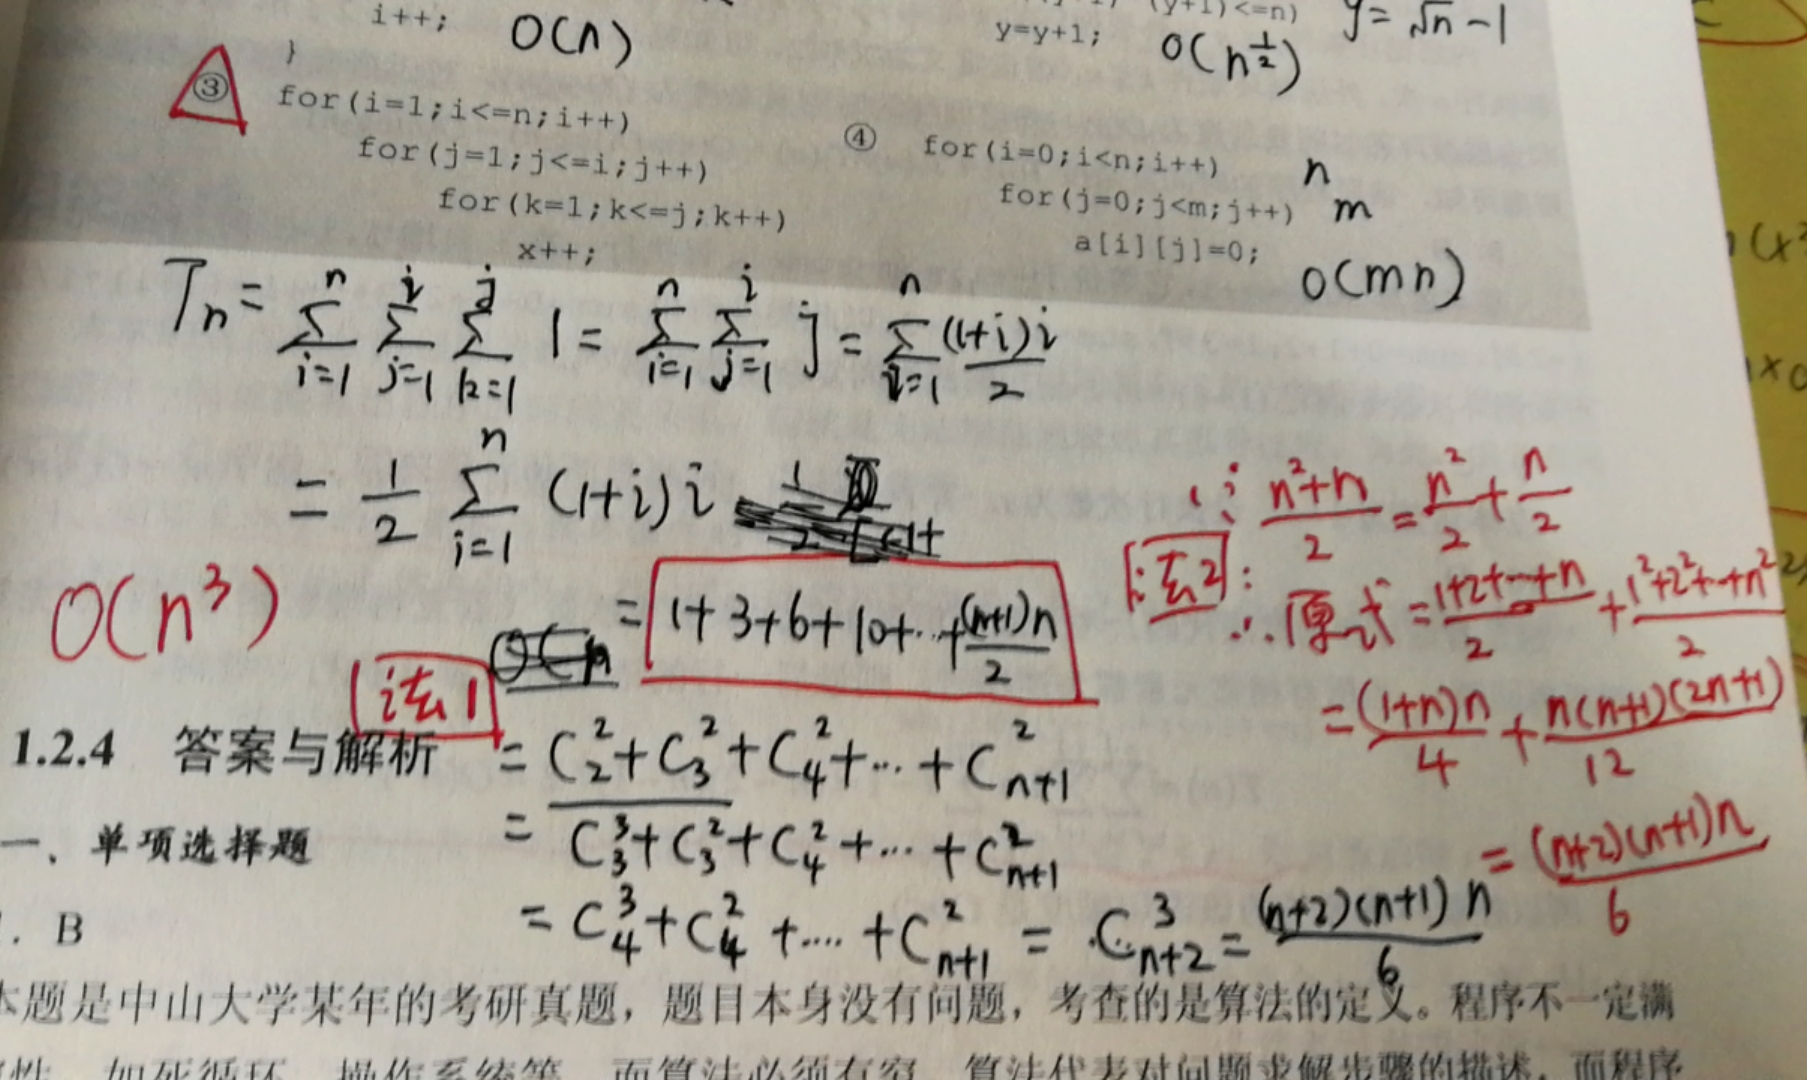 i++;
}
O(n)
(y+1)<=n)
y=y+1;
O(n^{1/2})
y=√n-1
③
for(i=1;i<=n;i++)
for(j=1;j<=i;j++)
for(k=1;k<=j;k++)
x++;
④
for(i=0;i<n;i++) n
for(j=0;j<m;j++) m
a[i][j]=0;
O(mn)
T_n = \sum_{i=1}^{n} \sum_{j=1}^{i} \sum_{k=1}^{j} 1 = \sum_{i=1}^{n} \sum_{j=1}^{i} j = \sum_{i=1}^{n} \frac{(1+i)i}{2}
= \frac{1}{2} \sum_{i=1}^{n} (1+i)i
O(n^3)
= 1+3+6+10+...+\frac{(n+1)n}{2}
法1
= C_2^2+C_3^2+C_4^2+...+C_{n+1}^2
= C_3^3+C_3^2+C_4^2+...+C_{n+1}^2
= C_4^3+C_4^2+....+C_{n+1}^2 = C_{n+2}^3 = \frac{(n+2)(n+1)n}{6}
∵ \frac{n^2+n}{2} = \frac{n^2}{2}+\frac{n}{2}
法2:
∴原式 = \frac{1+2+...+n}{2}+\frac{1^2+2^2+...+n^2}{2}
= \frac{(1+n)n}{4}+\frac{n(n+1)(2n+1)}{12}
= \frac{(n+2)(n+1)n}{6}
1.2.4 答案与解析
一、单项选择题
. B
本题是中山大学某年的考研真题，题目本身没有问题，考查的是算法的定义。程序不一定满
性，如死循环、操作系统等，而算法必须有穷。算法代表对问题求解步骤的描述，而程序